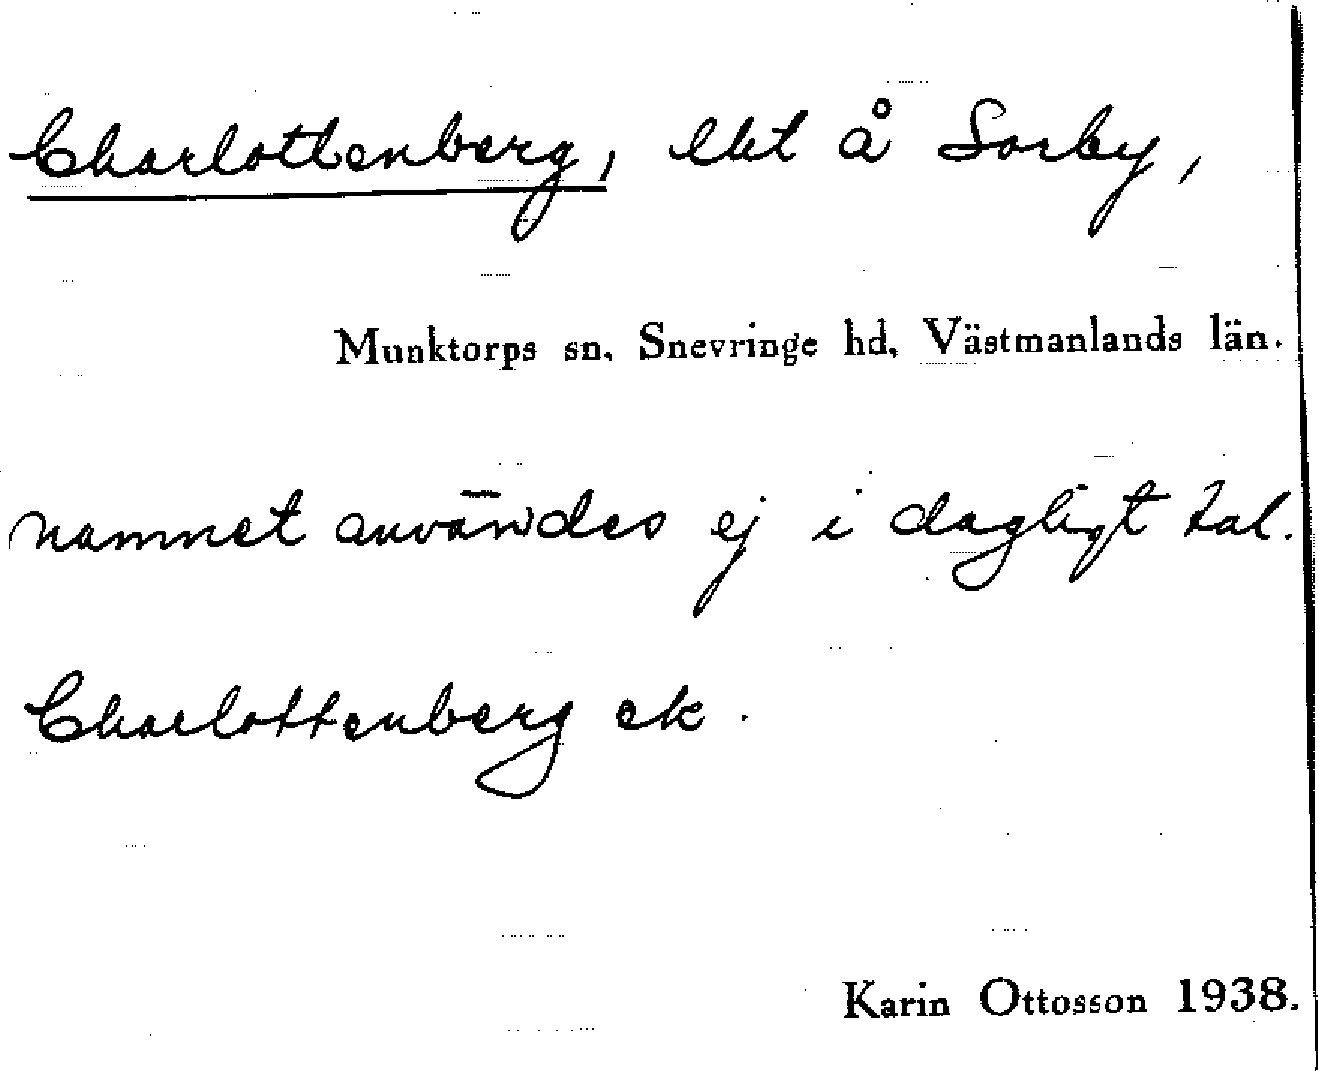 Charlottenberg, lht å Sorby,
Munktorps sn. Snevringe hd. Västmanlands län.
namnet användes ej i dagligt tal.
Charlottenberg ek.
Karin Ottosson 1938.